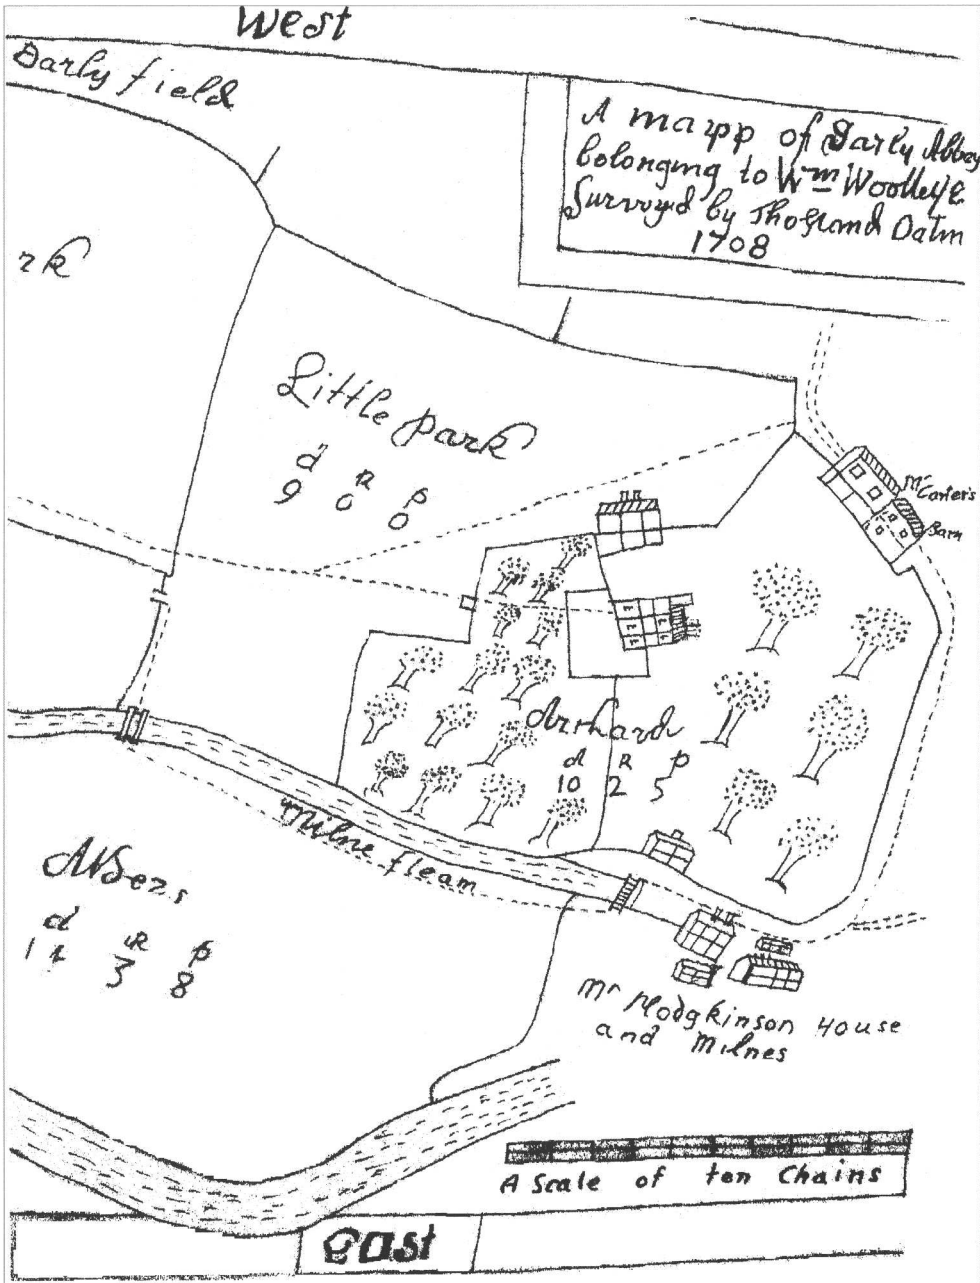 West
Darly field
A mapp of Darly Abbey
belonging to Wm Woolley E
Survey'd by Tho
1708
rk
Little park
d R p
9 0 0
Mr
Carter's
Barn
Orchard
d R p
10 2 5
Milne fleam
d R p
3 8
Mr Hodgkinson House
and Milnes
A Scale of ten Chains
East